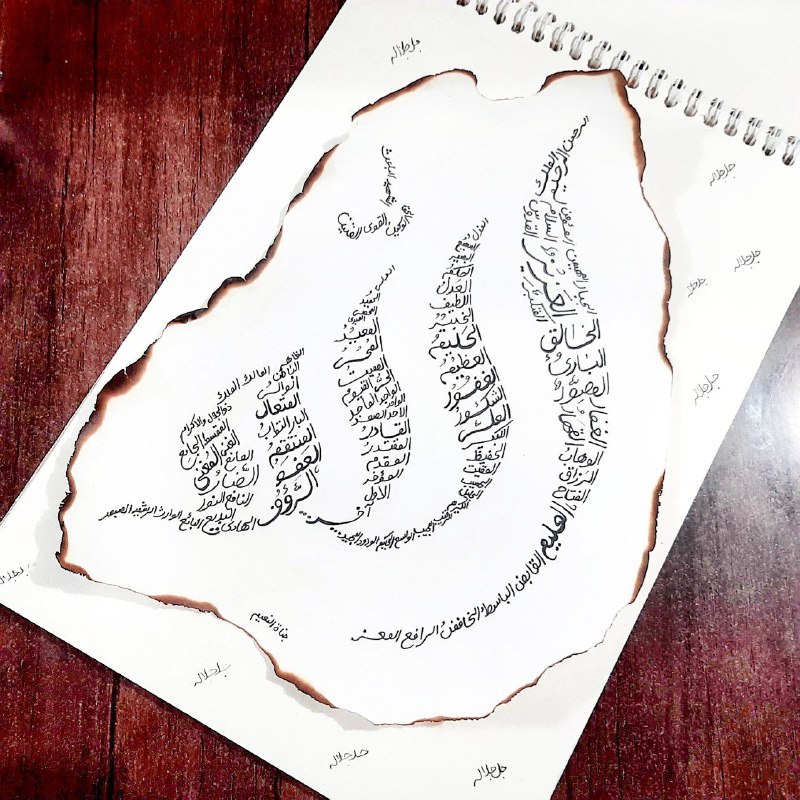 جل جلاله
جل جلاله
جل جلاله
جل جلاله
جل جلاله
الرحمن الرحيم
الملك
القدوس
السلام
المؤمن
المهيمن
العزيز
الجبار
المتكبر
الخالق
البارئ
المصور
الغفار
القهار
الوهاب
الرزاق
الفتاح
العليم
القابض الباسط الخافض الرافع المعز
المذل
السميع
البصير
الحكم
العدل
اللطيف
الخبير
الحليم
العظيم
الغفور
الشكور
العلي
الكبير
الحفيظ
المقيت
الحسيب
الجليل
الكريم الرقيب المجيب الواسع الحكيم الودود المجيد
الباعث
الشهيد
الحق
الوكيل القوي المتين
الحميد
المحصي
المبدئ
المعيد
المحيي
المميت
الحي القيوم
الواجد الماجد
الواحد
الاحد الصمد
القادر
المقتدر
المقدم
المؤخر
الاول
آخر
الظاهر
الباطن
الوالي
المتعال
البر التواب
المنتقم
العفو
الرؤوف
مالك الملك
ذو الجلال والاكرام
المقسط الجامع
الغني المغني
المانع
الضار
النافع النور
الهادي البديع الباقي الوارث الرشيد الصبور
جناة النعيم
جل جلاله
جل جلاله
جل جلاله
جل جلاله